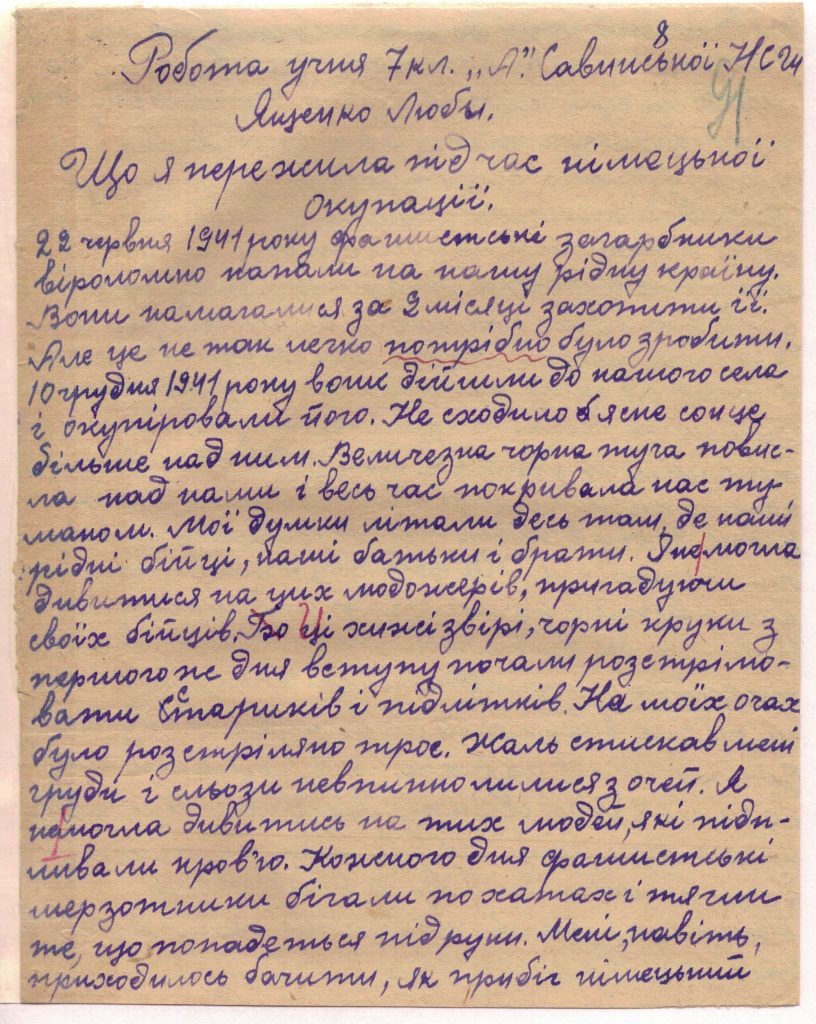 8
Робота учня 7 кл. „А". Савинської НСШ
91
Ященко Люби.
Що я пережила під час німецької
окупації.
22 червня 1941 року фашистські загарбники
віроломно напали на нашу рідну країну.
Вони намагалися за 2 місяці захопити її.
Але це не так легко потрібно було зробити.
10 грудня 1941 року вони дійшли до нашого села
і окупіровали його. Не сходило ясне сонце
більше над ним. Величезна чорна туча повис-
ла над нами і весь час покривала нас ту-
маном. Мої думки літали десь там, де наші
рідні бійці, наші батьки і брати. Я не могла
дивитися на цих людожерів, пригадуючи
своїх бійців. Бо ці хижі звірі, чорні круки з
першого же дня вступу почали розстрілю-
вати стариків і підлітків. На моїх очах
було розстріляно троє. Жаль стискав мені
груди і сльози невпинно лилися з очей. Я
не могла дивитись на тих людей, які підп-
ливали кров'ю. Кожного дня фашистські
мерзотники бігали по хатах і тягли
те, що попадеться під руки. Мені, навіть,
приходилось бачити, як прибіг німецький